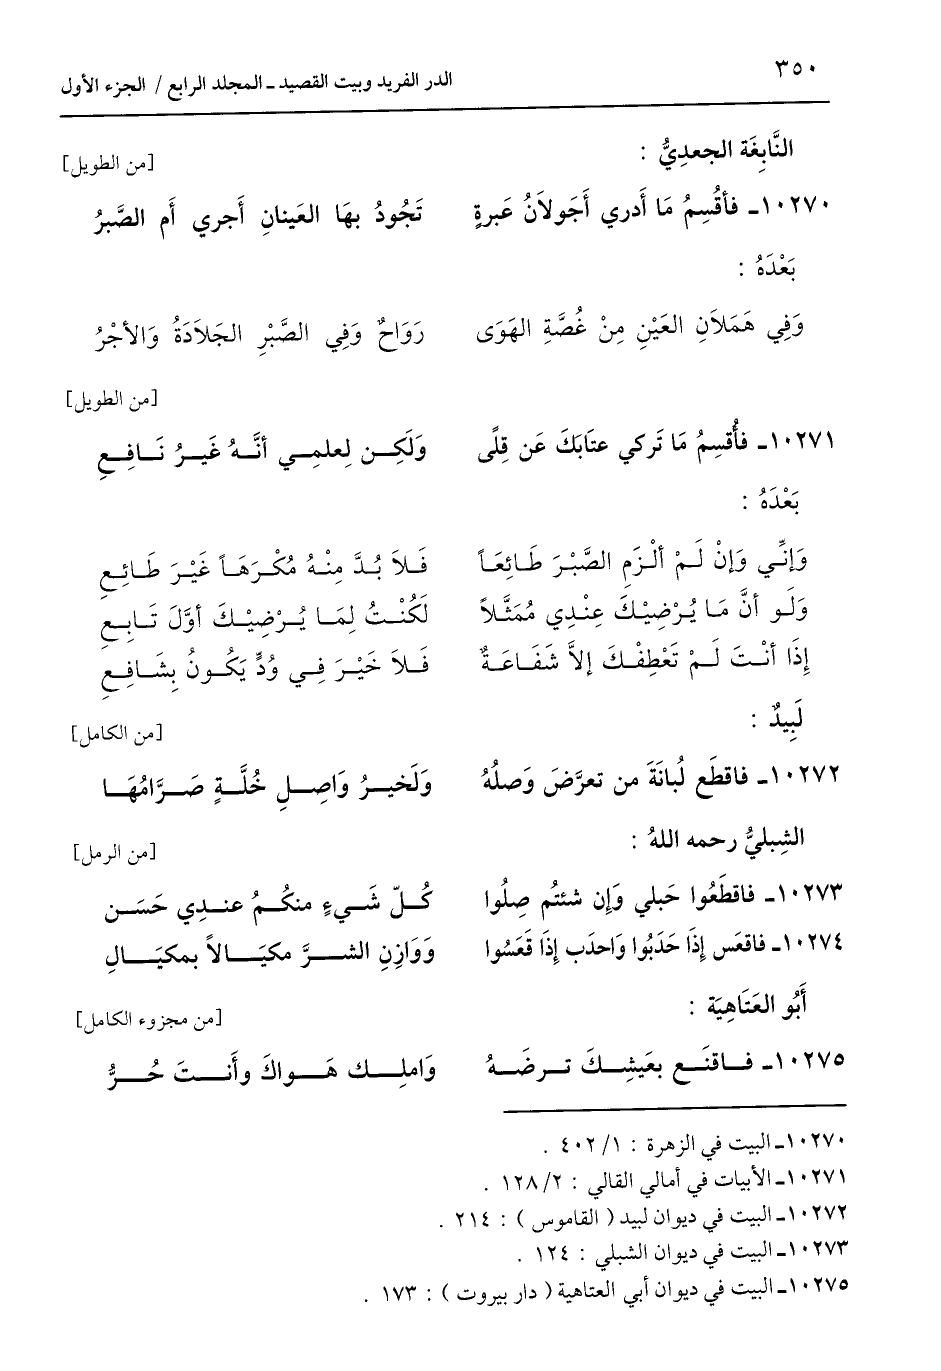 ٣٥٠
الدر الفريد وبيت القصيد ـ المجلد الرابع / الجزء الأول
النَّابِغَة الجعدِيُّ :
[من الطويل]
١٠٢٧٠ـ فأقْسِمُ مَا أَدري أَجَولاَنُ عَبرةٍ تَجُودُ بهَا العَينانِ أَجري أَم الصَّبرُ
بَعْدَهُ :
وَفِي هَمَلاَنِ العَيْنِ مِنْ غُصَّةِ الهَوَى رَوَاحٌ وَفِي الصَّبْرِ الجَلاَدَةُ وَالأجْرُ
[من الطويل]
١٠٢٧١ـ فأُقسِمُ مَا تَركي عتَابَكَ عَن قِلًى وَلَكِـن لِعلمِـي أنَّـهُ غَيـرُ نَـافِـعِ
بَعْدَهُ :
وَإنِّـي وَإنْ لَـمْ ألْـزَمِ الصَّبْـرَ طَـائِعَـاً فَـلاَ بُـدَّ مِنْـهُ مُكْـرَهَـاً غَيْـرَ طَـائِـعِ
وَلَـو أنَّ مَـا يُـرْضِيْـكَ عِنْـدِي مُمَثَّـلاً لَكُنْـتُ لِمَـا يُـرْضِيْـكَ أوَّلَ تَـابِـعِ
إذَا أنْـتَ لَـمْ تَعْطِفْـكَ إلاَّ شَفَـاعَـةٌ فَـلاَ خَيْـرَ فِـي وُدٍّ يَكُـونُ بِشَـافِـعِ
لَبِيدٌ :
[من الكامل]
١٠٢٧٢ـ فاقطَع لُبانَةَ من تعرَّضَ وَصلُهُ وَلَخيـرُ وَاصِـلِ خُلَّـةٍ صَـرَّامُهَـا
الشِبليُّ رحمه اللهُ :
[من الرمل]
١٠٢٧٣ـ فاقطَعُوا حَبلي وَإن شئتُم صِلُوا كُـلّ شَـيءٍ منكُـمُ عنـدِي حَسَـن
١٠٢٧٤ـ فاقعَس إذَا حَدَبُوا وَاحدَب إذَا قَعَسُوا وَوَازِنِ الشـرَّ مكيَـالاً بمكيَـالِ
أَبُو العَتَاهِيَة :
[من مجزوء الكامل]
١٠٢٧٥ـ فـاقنَـع بعَيشِـكَ تـرضَـهُ وَاملِـك هَـواكَ وأَنـتَ حُـرُّ
١٠٢٧٠ـ البيت في الزهرة : ١/ ٤٠٢ .
١٠٢٧١ـ الأبيات في أمالي القالي : ٢/ ١٢٨ .
١٠٢٧٢ـ البيت في ديوان لبيد ( القاموس ) : ٢١٤ .
١٠٢٧٣ـ البيت في ديوان الشبلي : ١٢٤ .
١٠٢٧٥ـ البيت في ديوان أبي العتاهية ( دار بيروت ) : ١٧٣ .